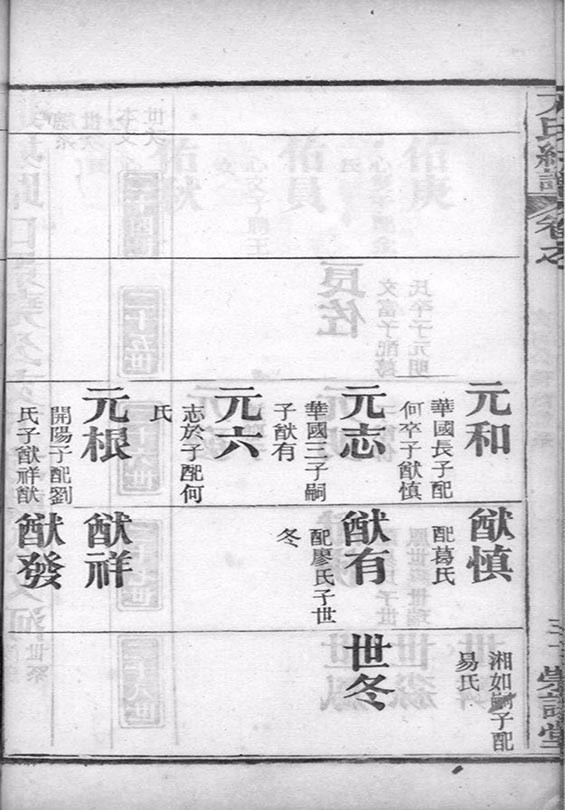 卷之
元和
華國長子配
何卒子猷慎
元志
華國三子嗣
子猷有
元六
志於子配何
氏
元根
開陽子配劉
氏子猷祥猷
猷慎
配葛氏
猷有
配廖氏子世
冬
猷祥
猷發
湘如嗣子配
易氏
世冬